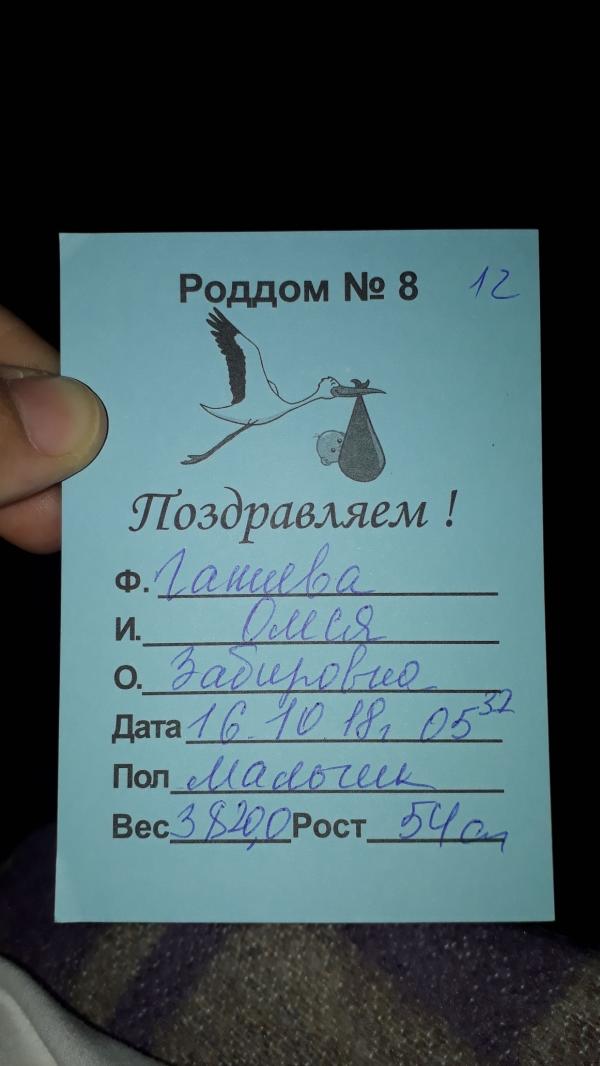 Роддом № 8 12
Поздравляем !
Ф. Ганиева
И. Олеся
О. Забировна
Дата 16.10.18г 05 32
Пол мальчик
Вес 3820,0 Рост 54 см